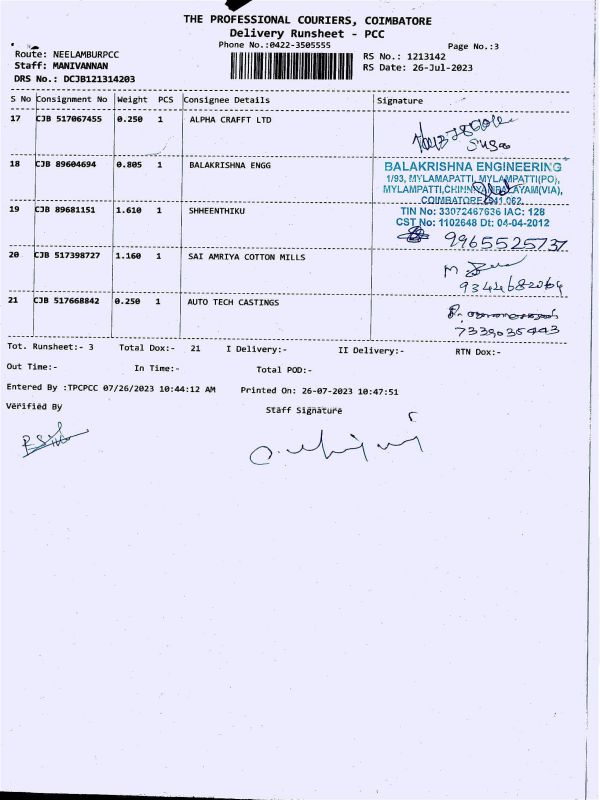 THE PROFESSIONAL COURIERS, COIMBATORE
Delivery Runsheet - PCC
Phone No.:0422-3505555
Page No.:3
Route: NEELAMBURPCC
RS No.: 1213142
Staff: MANIVANNAN
RS Date: 26-Jul-2023
DRS No.: DCJB121314203
S No Consignment No Weight PCS Consignee Details Signature
17 CJB 517067455 0.250 1 ALPHA CRAFFT LTD
18 CJB 89604694 0.805 1 BALAKRISHNA ENGG
BALAKRISHNA ENGINEERING
1/93, MYLAMAPATTI, MYLAMPATTI(PO),
MYLAMPATTI, CHINNIYAMPALAYAM(VIA),
COIMBATORE-641 062.
19 CJB 89681151 1.610 1 SHHEENTHIKU
TIN No: 33072467636 IAC: 128
CST No: 1102648 Dt: 04-04-2012
9965525737
20 CJB 517398727 1.160 1 SAI AMRIYA COTTON MILLS
9344682064
21 CJB 517668842 0.250 1 AUTO TECH CASTINGS
7339035443
Tot. Runsheet:- 3 Total Dox:- 21 I Delivery:- II Delivery:- RTN Dox:-
Out Time:- In Time:- Total POD:-
Entered By :TPCPCC 07/26/2023 10:44:12 AM Printed On: 26-07-2023 10:47:51
Verified By Staff Signature